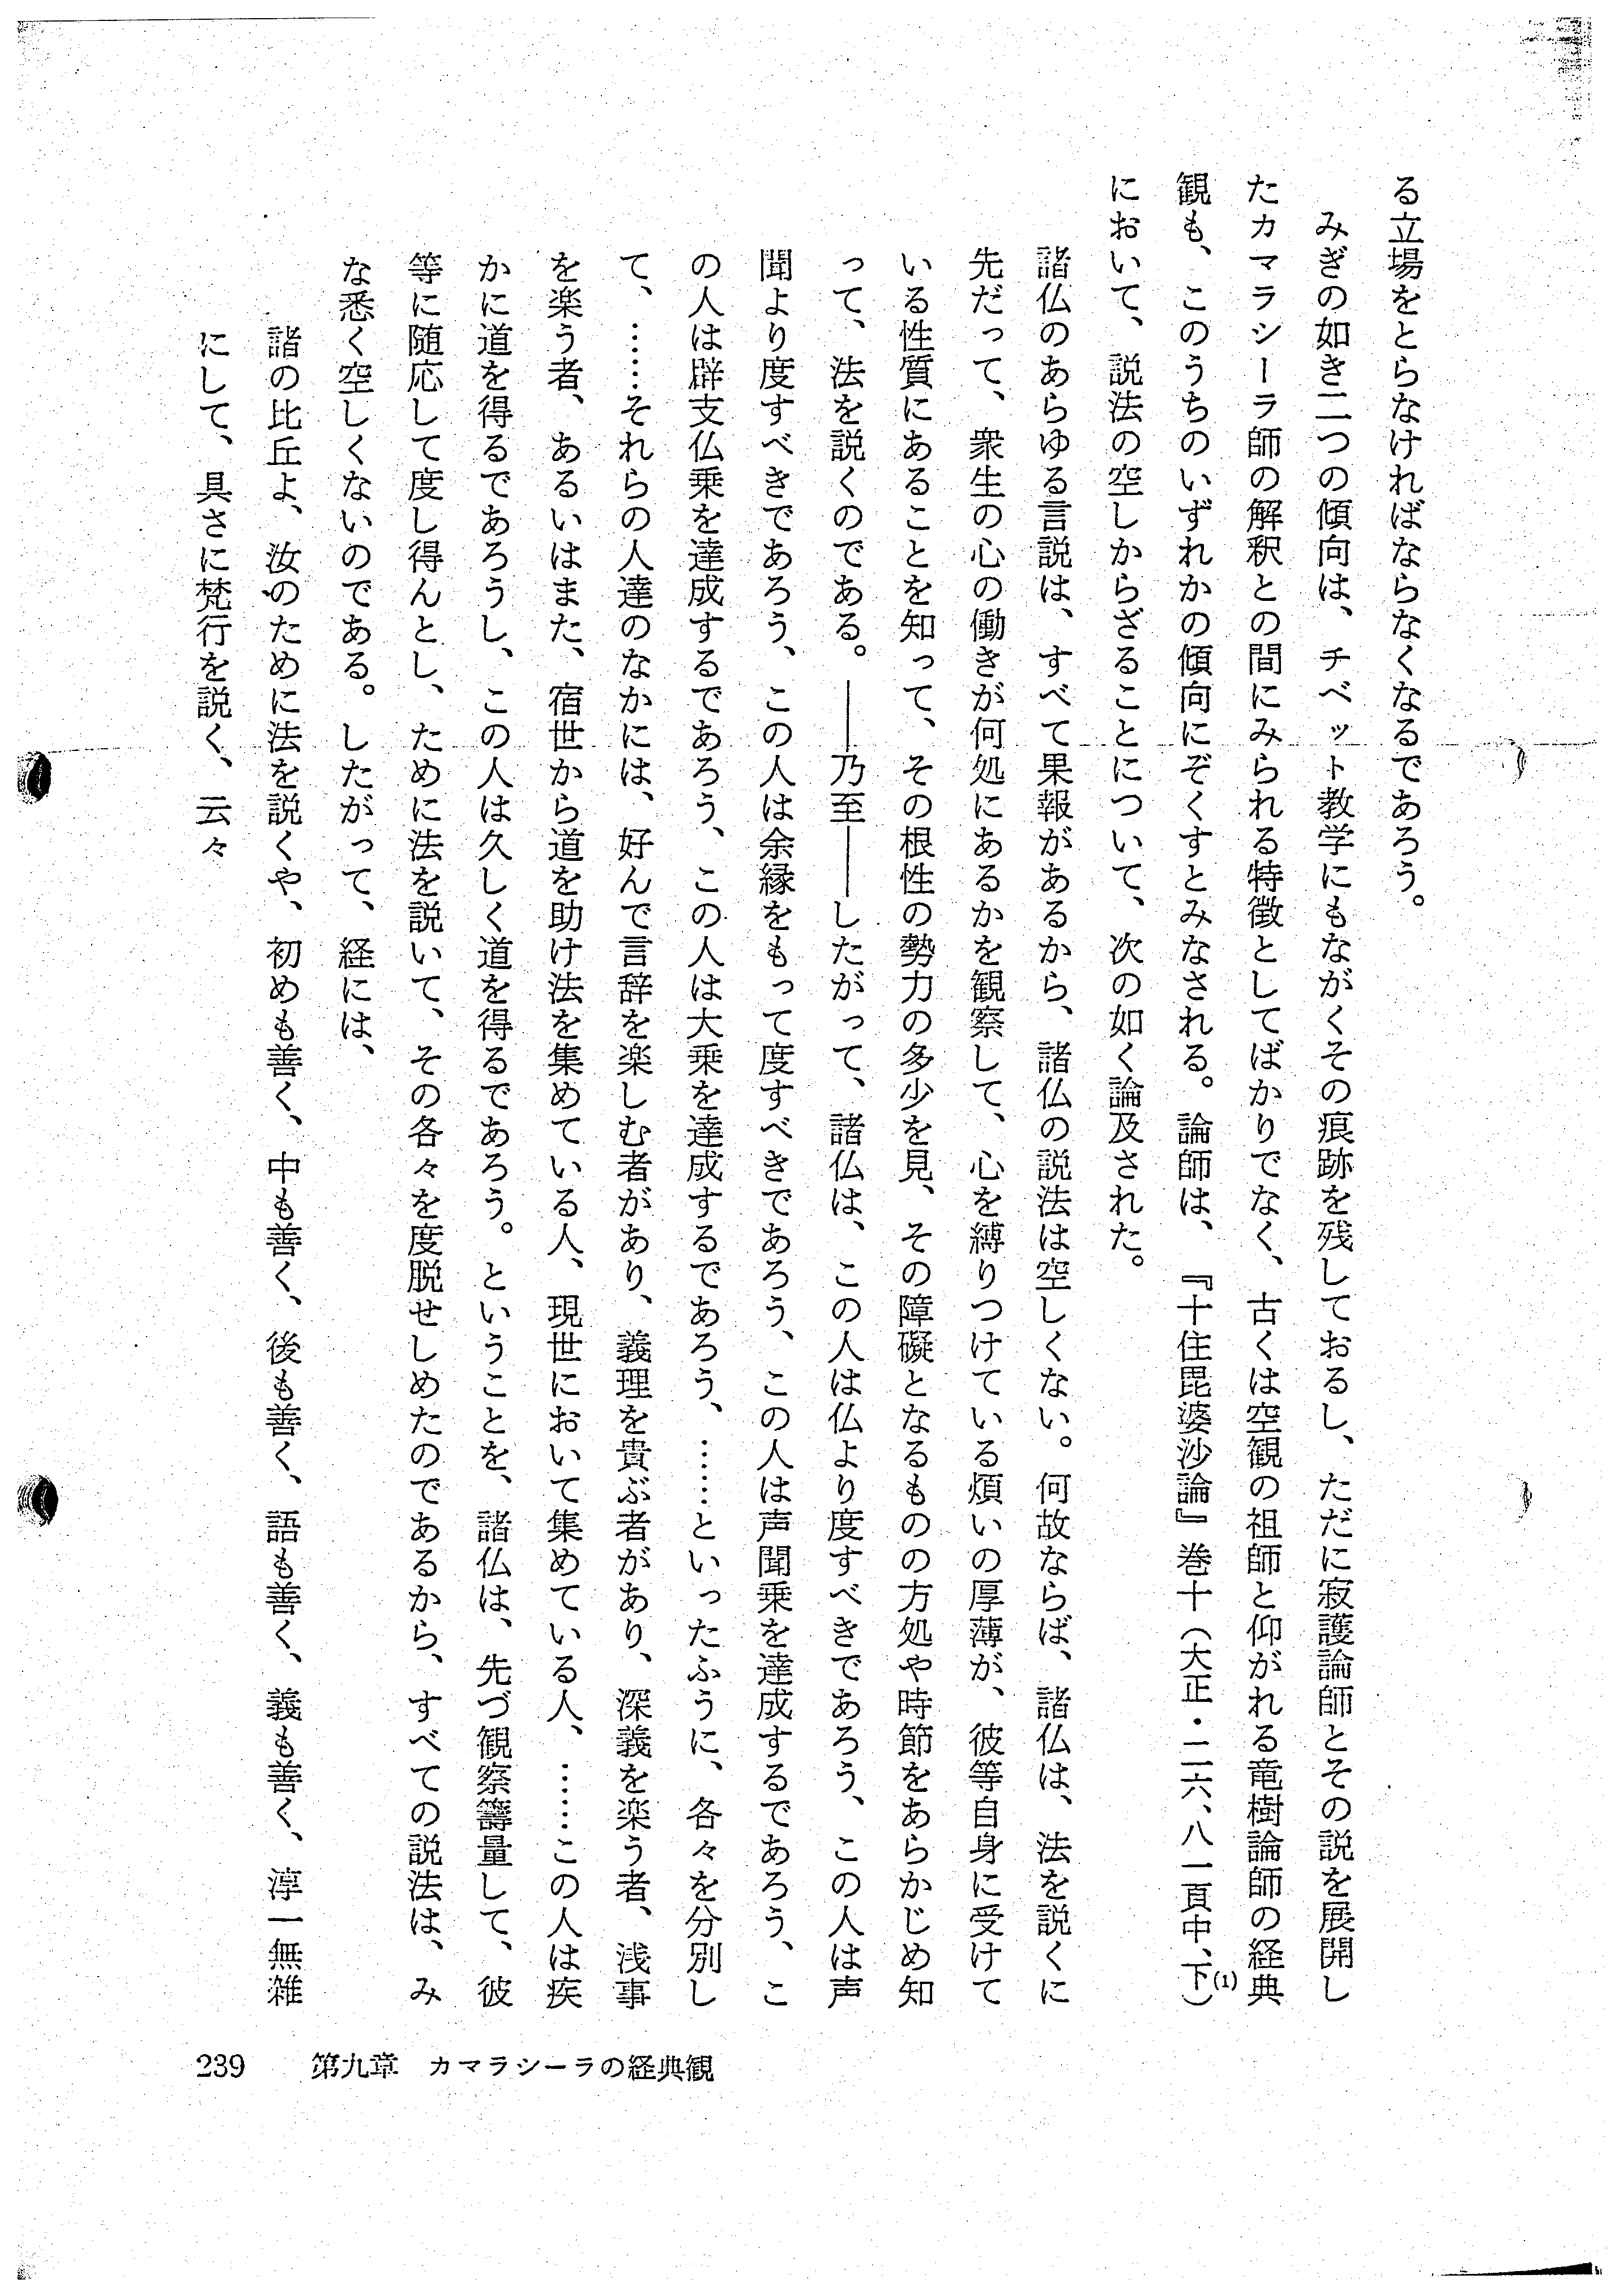 る立場をとらなければならなくなるであろう。
みぎの如き二つの傾向は、チベット教学にもながくその痕跡を残しておるし、ただに寂護論師とその説を展開し
たカマラシーラ師の解釈との間にみられる特徴としてばかりでなく、古くは空観の祖師と仰がれる竜樹論師の経典
観も、このうちのいずれかの傾向にぞくすとみなされる。論師は、『十住毘婆沙論』巻十（大正・二六、八一頁中、下）(1)
において、説法の空しからざることについて、次の如く論及された。
諸仏のあらゆる言説は、すべて果報があるから、諸仏の説法は空しくない。何故ならば、諸仏は、法を説くに
先だって、衆生の心の働きが何処にあるかを観察して、心を縛りつけている煩いの厚薄が、彼等自身に受けて
いる性質にあることを知って、その根性の勢力の多少を見、その障礙となるものの方処や時節をあらかじめ知
って、法を説くのである。――乃至――したがって、諸仏は、この人は仏より度すべきであろう、この人は声
聞より度すべきであろう、この人は余縁をもって度すべきであろう、この人は声聞乗を達成するであろう、こ
の人は辟支仏乗を達成するであろう、この人は大乗を達成するであろう、……といったふうに、各々を分別し
て、……それらの人達のなかには、好んで言辞を楽しむ者があり、義理を貴ぶ者があり、深義を楽う者、浅事
を楽う者、あるいはまた、宿世から道を助け法を集めている人、現世において集めている人、……この人は疾
かに道を得るであろうし、この人は久しく道を得るであろう。ということを、諸仏は、先づ観察籌量して、彼
等に随応して度し得んとし、ために法を説いて、その各々を度脱せしめたのであるから、すべての説法は、み
な悉く空しくないのである。したがって、経には、
諸の比丘よ、汝のために法を説くや、初めも善く、中も善く、後も善く、語も善く、義も善く、淳一無雑
にして、具さに梵行を説く、云々
239 第九章 カマラシーラの経典観